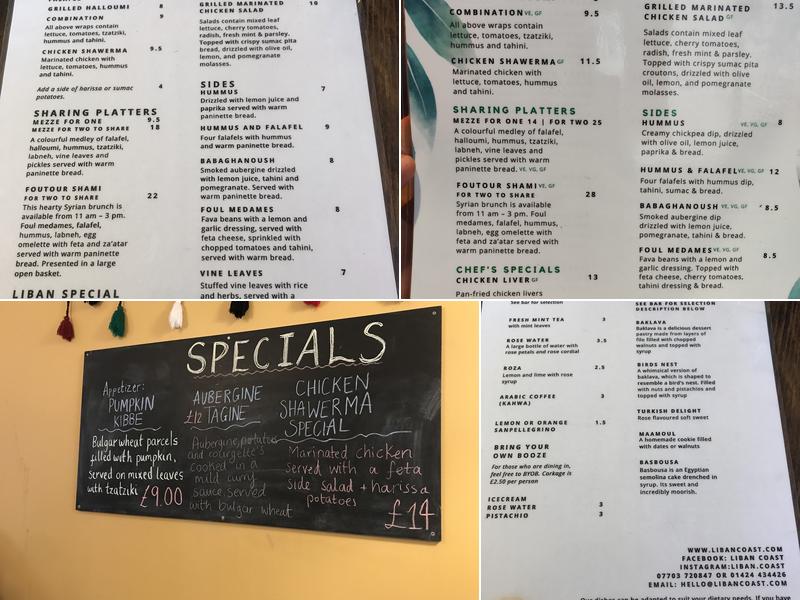 GRILLED HALLOUMI 8
COMBINATION 9
All above wraps contain
lettuce, tomatoes, tzatziki,
hummus and tahini.
CHICKEN SHAWERMA 9.5
Marinated chicken with
lettuce, tomatoes, hummus
and tahini.
Add a side of harissa or sumac 4
potatoes.
SHARING PLATTERS
MEZZE FOR ONE 9.5
MEZZE FOR TWO TO SHARE 18
A colourful medley of falafel,
halloumi, hummus, tzatziki,
labneh, vine leaves and
pickles served with warm
paninete bread.
FOUTOUR SHAMI
FOR TWO TO SHARE 22
This hearty Syrian brunch is
available from 11 am – 3 pm.
Foul medames, falafel,
hummus, labneh, egg
omelette with feta and za'atar
served with warm paninete
bread. Presented in a large
open basket.
LIBAN SPECIAL
GRILLED MARINATED 10
CHICKEN SALAD
Salads contain mixed leaf
lettuce, cherry tomatoes,
radish, fresh mint & parsley.
Topped with crispy sumac pita
bread, drizzled with olive oil,
lemon, and pomegranate
molasses.
SIDES
HUMMUS 7
Drizzled with lemon juice and
paprika served with warm
paninete bread.
HUMMUS AND FALAFEL 9
Four falafels with hummus
and warm paninete bread.
BABAGHANOUSH 8
Smoked aubergine drizzled
with lemon juice, tahini and
pomegranate. Served with
warm paninete bread.
FOUL MEDAMES 8
Fava beans with a lemon and
garlic dressing, served with
feta cheese, sprinkled with
chopped tomatoes and tahini,
served with warm bread.
VINE LEAVES 7
Stuffed vine leaves with rice
and herbs, served with a
COMBINATION VE, GF 9.5
All above wraps contain
lettuce, tomatoes, tzatziki,
hummus and tahini.
CHICKEN SHAWERMA GF 11.5
Marinated chicken with
lettuce, tomatoes, hummus
and tahini.
SHARING PLATTERS
MEZZE FOR ONE 14 | FOR TWO 25
A colourful medley of falafel,
halloumi, hummus, tzatziki,
labneh, vine leaves and
pickles served with warm
paninete bread. VE, VG, GF
FOUTOUR SHAMI VE, GF
FOR TWO TO SHARE 28
Syrian brunch is available
from 11 am – 3 pm. Foul
medames, falafel, hummus,
labneh, egg omelette with
feta and za'atar served with
warm paninete bread.
CHEF'S SPECIALS
CHICKEN LIVER GF 13
Pan-fried chicken livers
GRILLED MARINATED 13.5
CHICKEN SALAD GF
Salads contain mixed leaf
lettuce, cherry tomatoes,
radish, fresh mint & parsley.
Topped with crispy sumac pita
croutons, drizzled with olive
oil, lemon, and pomegranate
molasses.
SIDES
HUMMUS VE, VG, GF 8
Creamy chickpea dip, drizzled
with olive oil, lemon juice,
paprika & bread.
HUMMUS & FALAFEL VE, VG, GF 12
Four falafels with hummus dip,
tahini, sumac & bread.
BABAGHANOUSH VE, VG, GF 8.5
Smoked aubergine dip
drizzled with lemon juice,
pomegranate, tahini & bread.
FOUL MEDAMES VE, VG, GF 8.5
Fava beans with a lemon and
garlic dressing. Topped with
feta cheese, cherry tomatoes,
tahini dressing & bread.
SPECIALS
Appetizer:
PUMPKIN
KIBBE
Bulgar wheat parcels
filled with pumpkin,
served on mixed leaves
with tzatziki £9.00
AUBERGINE
£12 TAGINE
Aubergine, potatoes
and courgette's
cooked in a
mild curry
sauce served
with bulgar wheat
CHICKEN
SHAWERMA
SPECIAL
Marinated chicken
served with a feta
side salad + harissa
potatoes
£14
See bar for selection
FRESH MINT TEA 3
with mint leaves
ROSE WATER 3.5
A large bottle of water with
rose petals and rose cordial
ROZA 2.5
Lemon and lime with rose
syrup
ARABIC COFFEE 3
(KAHWA)
LEMON OR ORANGE 1.5
SANPELLEGRINO
BRING YOUR
OWN BOOZE
For those who are dining in,
feel free to BYOB. Corkage is
£2.50 per person
ICECREAM
ROSE WATER 3
PISTACHIO 3
SEE BAR FOR SELECTION
DESCRIPTION BELOW
BAKLAVA
Baklava is a delicious dessert
pastry made from layers of
filo filled with chopped
walnuts and topped with
syrup
BIRDS NEST
A whimsical version of
baklava, which is shaped to
resemble a bird's nest. Filled
with nuts and pistachios and
topped with syrup
TURKISH DELIGHT
Rose flavoured soft sweet
MAAMOUL
A homemade cookie filled
with dates or walnuts
BASBOUSA
Basbousa is an Egyptian
semolina cake drenched in
syrup. Its sweet and
incredibly moorish.
WWW.LIBANCOAST.COM
FACEBOOK: LIBAN COAST
INSTAGRAM:LIBAN.COAST
07703 720847 OR 01424 434426
EMAIL: HELLO@LIBANCOAST.COM
Our dishes can be adapted to suit your dietary needs. If you have